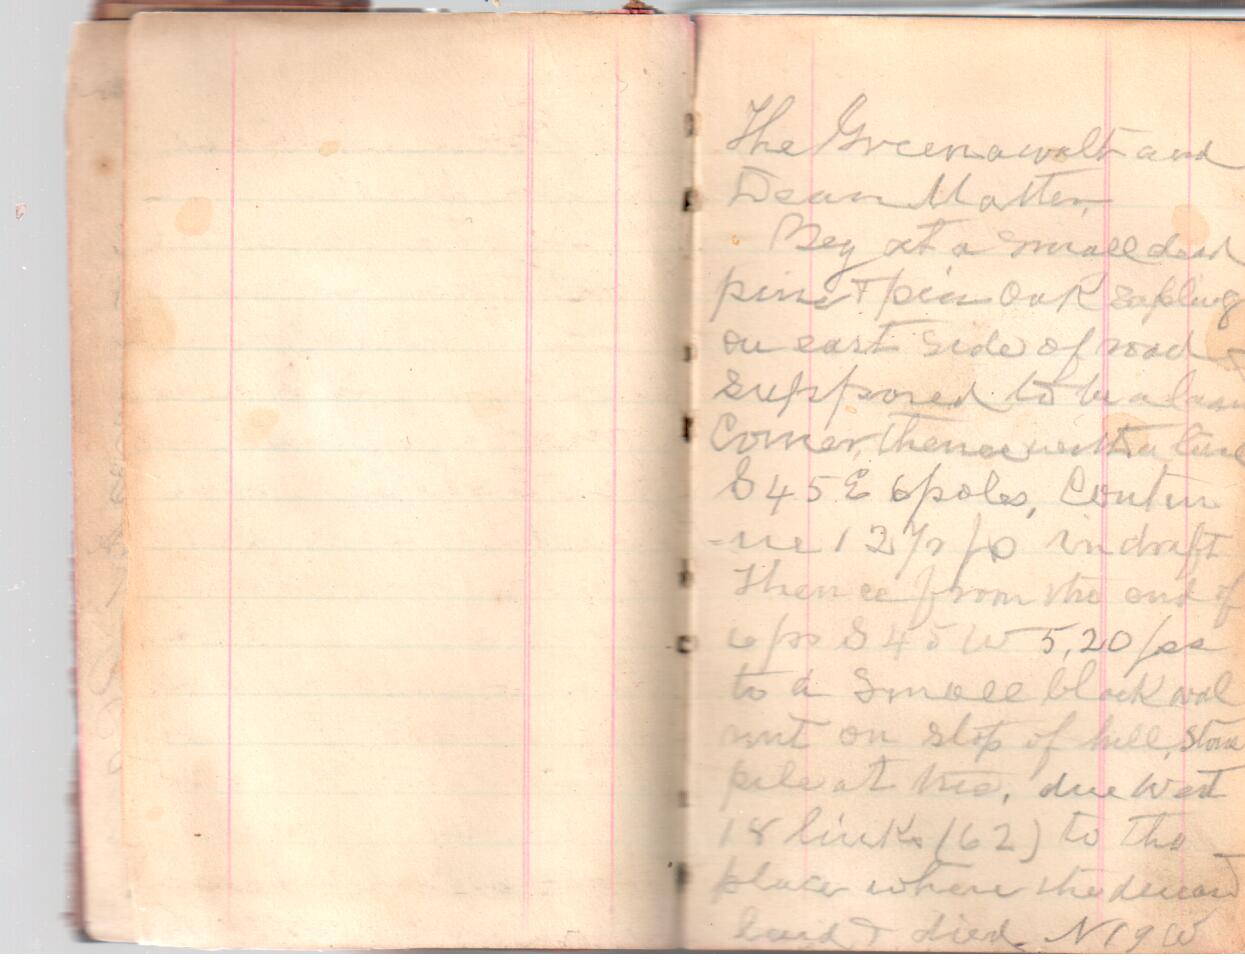 The Greenawalt and
Dean Matter,
Beg at a small dead
pine & pin Oak sapling
on east side of road &
supposed to be a
Corner, thence with a line
S 45 E 6 poles, Contin
-ue 12 in draft
Thence from the end of
6 ps S 45 W 5,20 ps
to a small black wal
nut on slop of hill, stone
pile at tree, due West
18 links (62) to the
place where the
laid & died. N 19 W